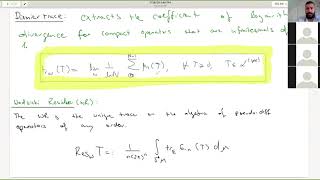 Dixmier trace: extracts the coefficient of logarithmic
divergence for compact operators that are infinitesimals of
1.
Tr_ω (T) = lim_ω 1/ln N Σ_{n=0}^{N-1} μ_n(T), ∀ T≥0, T∈
Wodzicki Residue (WR):
The WR is the unique trace on the algebra of pseudo-diff
operators of any order.
Res_W T = : 1/n(2π)^n ∫_{S*M} tr_E σ_{-n} (T) dμ